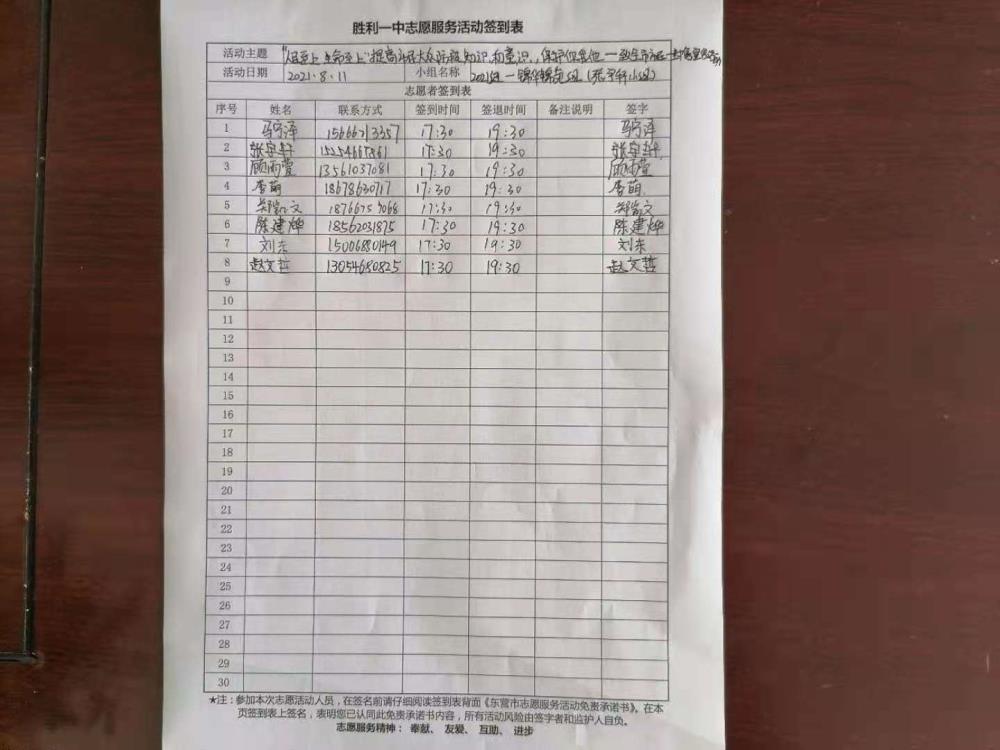 胜利一中志愿服务活动签到表
活动主题 "人民至上 生命至上"提高市民大众防疫知识和意识,保护
活动日期 2021.8.11 小组名称 2021级一
志愿者签到表
序号 姓名 联系方式 签到时间 签退时间 备注说明 签字
1 马宁泽 15666213357 17:30 19:30 马宁泽
2 张宇轩 17:30 19:30 张宇轩
3 顾雨萱 13561037081 17:30 19:30 顾雨萱
4 李萌 18678630717 17:30 19:30 李萌
5 郑凯文 17:30 19:30 郑凯文
6 陈建烨 18562031875 17:30 19:30 陈建烨
7 刘东 15006880149 17:30 19:30 刘东
8 赵文哲 13054680825 17:30 19:30 赵文哲
9
10
11
12
13
14
15
16
17
18
19
20
21
22
23
24
25
26
27
28
29
30
★注:参加本次志愿活动人员,在签名前请仔细阅读签到表背面《东营市志愿服务活动免责承诺书》,在本
页签到表上签名,表明您已认同此免责承诺书内容,所有活动风险由签字者和监护人自负。
志愿服务精神: 奉献、 友爱、 互助、 进步